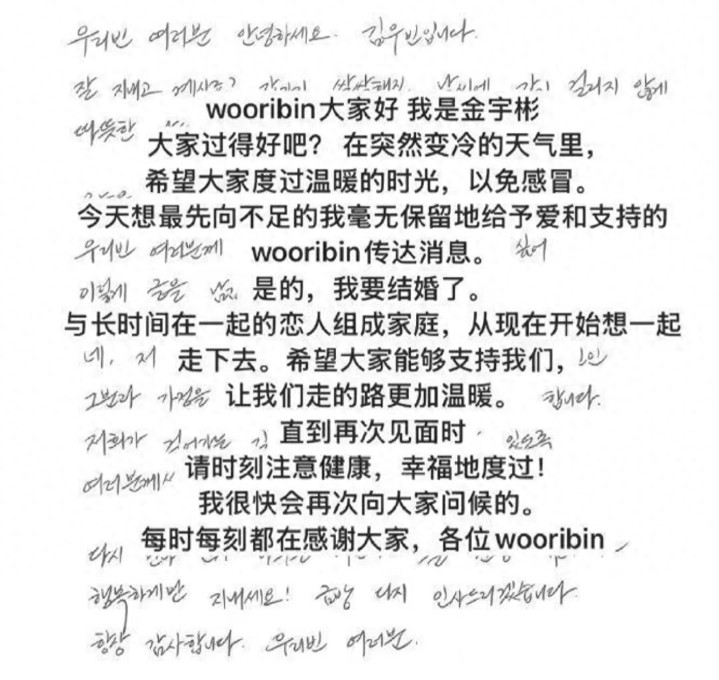 우리빈 여러분 안녕하세요. 김우빈입니다.
잘 지내고 계시죠? 갑자기 쌀쌀해진 날씨에 감기 걸리지 않게
wooribin大家好 我是金宇彬
따뜻한
大家过得好吧? 在突然变冷的天气里，
希望大家度过温暖的时光，以免感冒。
今天想最先向不足的我毫无保留地给予爱和支持的
우리빈 여러분께 wooribin传达消息。 싶어
이렇게 글을 남겨 是的，我要结婚了。
与长时间在一起的恋人组成家庭，从现在开始想一起
네, 저 走下去。希望大家能够支持我们，
그분과 가정을 让我们走的路更加温暖。 합니다.
저희가 걸어가는 길 直到再次见面时 있도록
여러분께서 请时刻注意健康，幸福地度过!
我很快会再次向大家问候的。
每时每刻都在感谢大家，各位wooribin
다시
행복하게만 지내세요! 금방 다시 인사드리겠습니다.
항상 감사합니다. 우리빈 여러분.